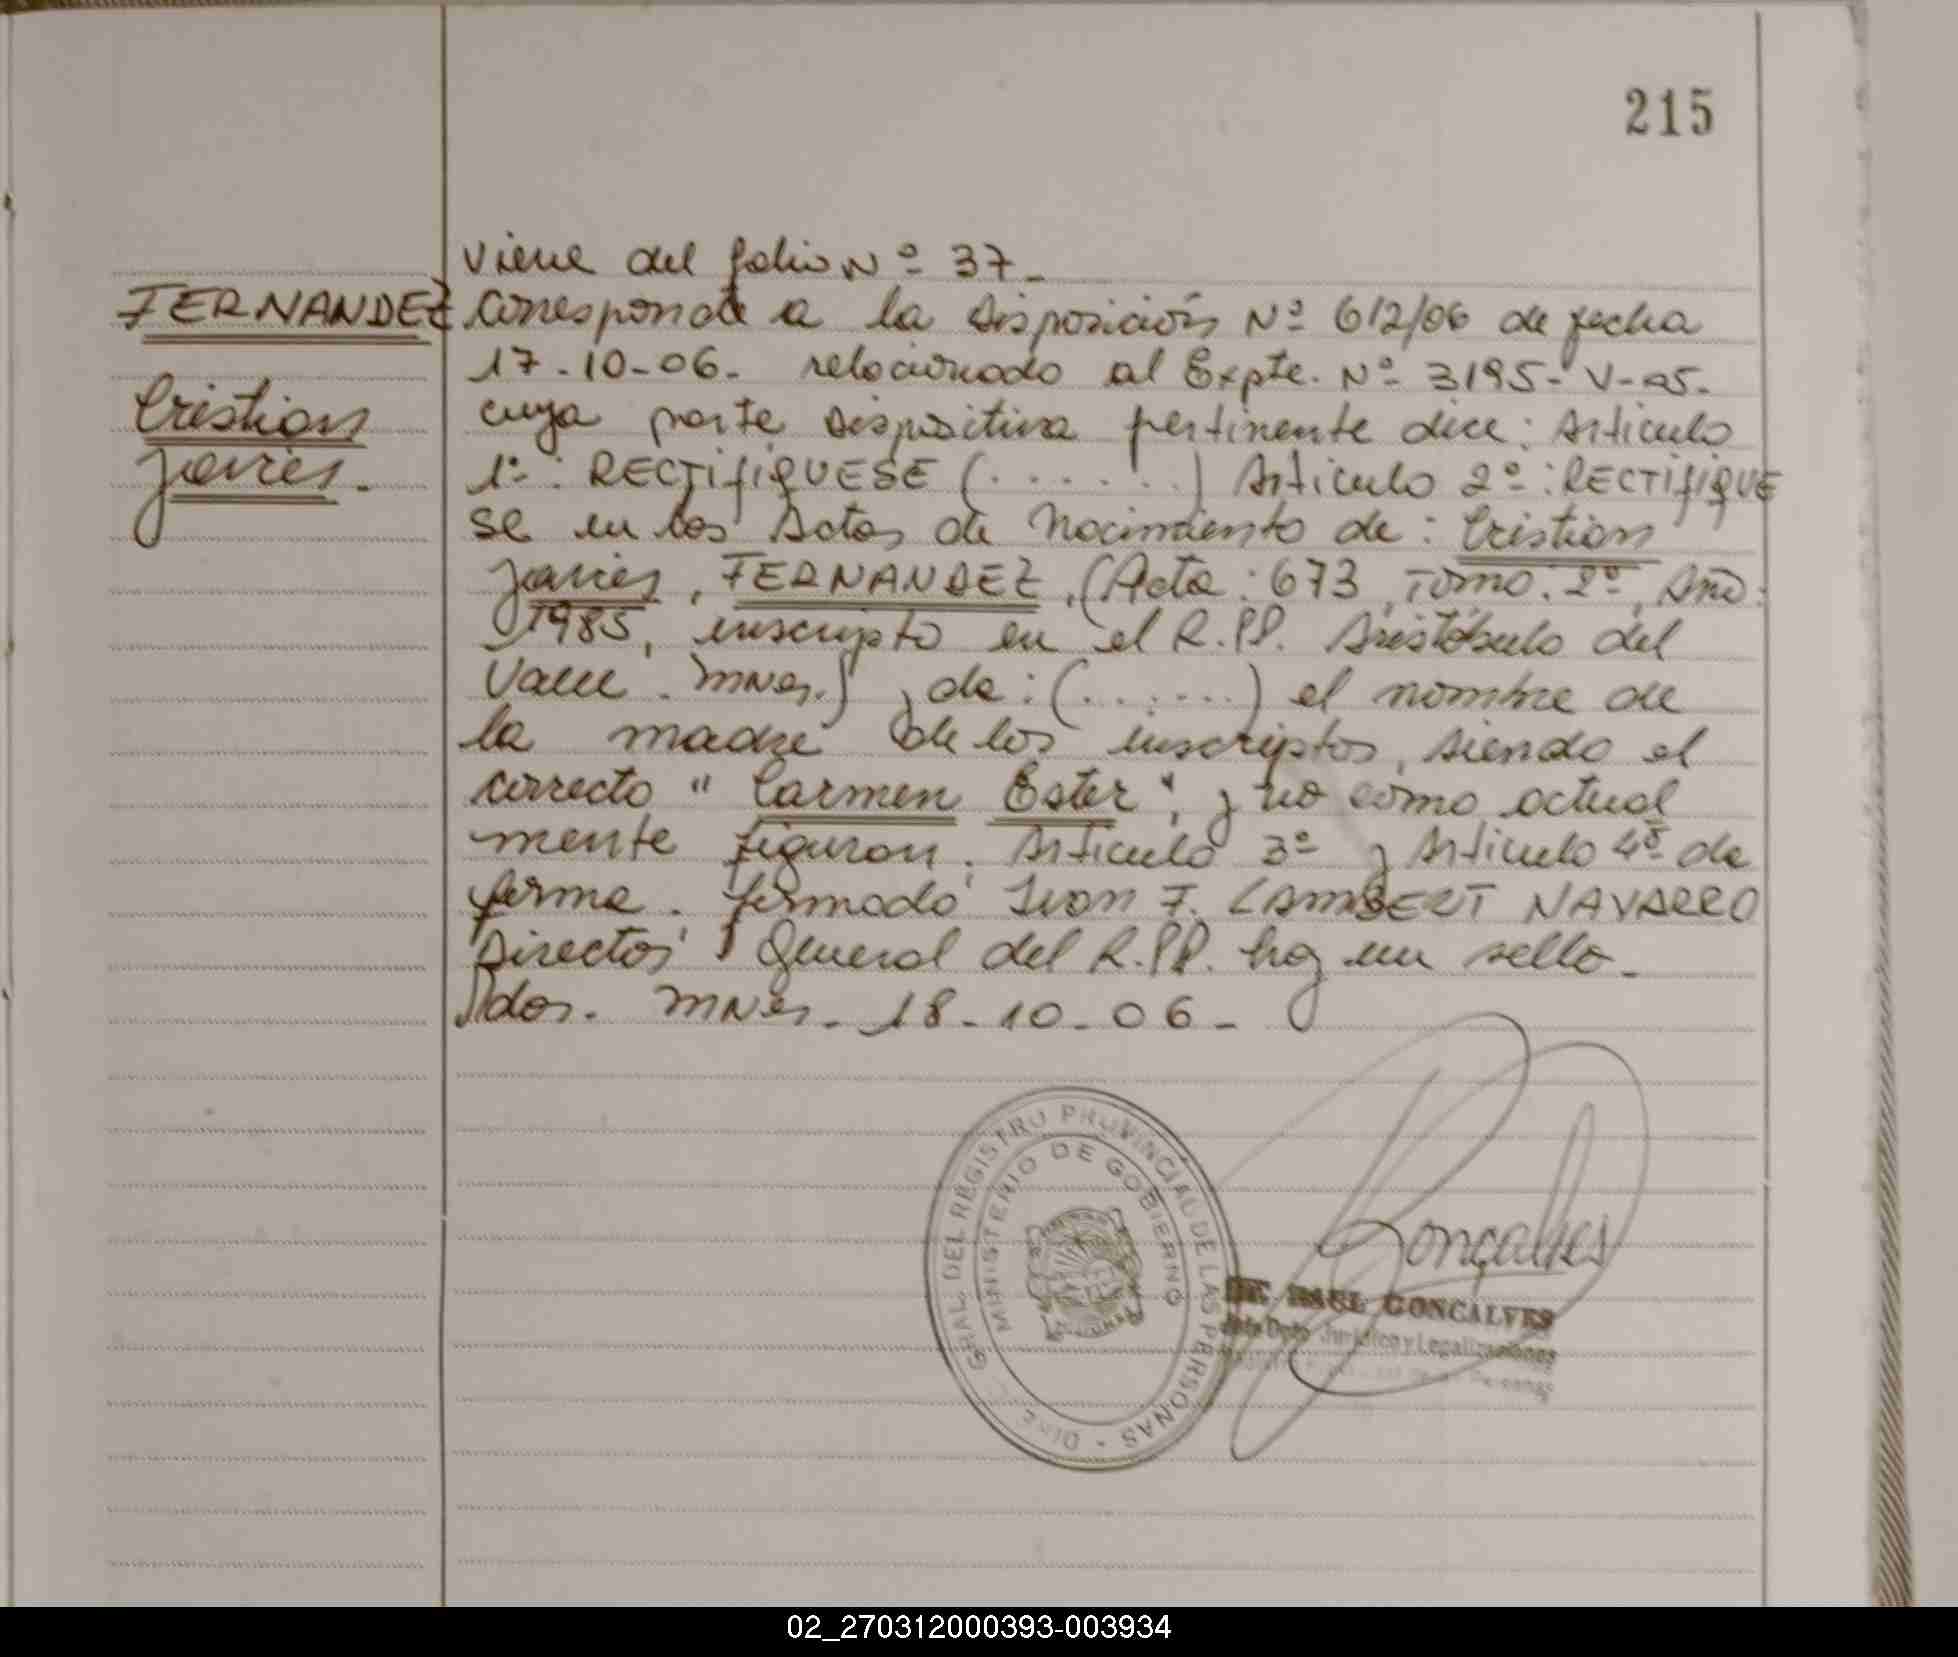 215
viene del folio Nº 37-
FERNANDEZ
Cristian
Javier.
Corresponde a la Disposición Nº 612/06 de fecha
17-10-06- relacionado al Expte. Nº 3195-V-05-
cuya parte dispositiva pertinente dice: Articulo
1º: RECTIFIQUESE (.......) Articulo 2º: RECTIFIQUE
se en las Actas de Nacimiento de: Cristian
Javier, FERNANDEZ, (Acta: 673, Tomo: 2º, Año:
1985, inscripto en el R.PP. Aristóbulo del
Valle. Mnes.) , de: (.......) el nombre de
la madre de los inscriptos, siendo el
correcto "Carmen Ester", y no como actual
mente figuran. Articulo 3º y Articulo 4º de
forma. firmado Ivan F. LAMBERT NAVARRO
Director General del R.PP. hay un sello-
Pdas. Mnes- 18-10-06-
DIREC GRAL. DEL REGISTRO PROVINCIAL DE LAS PERSONAS -
MINISTERIO DE GOBIERNO
Goncalves
DR. RAUL GONCALVES
Jefe Dpto Jurídico y Legalizaciones
02_270312000393-003934